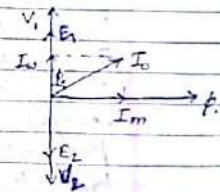 V₁
E₁
I₀
Iω
Im
E₂
V₂